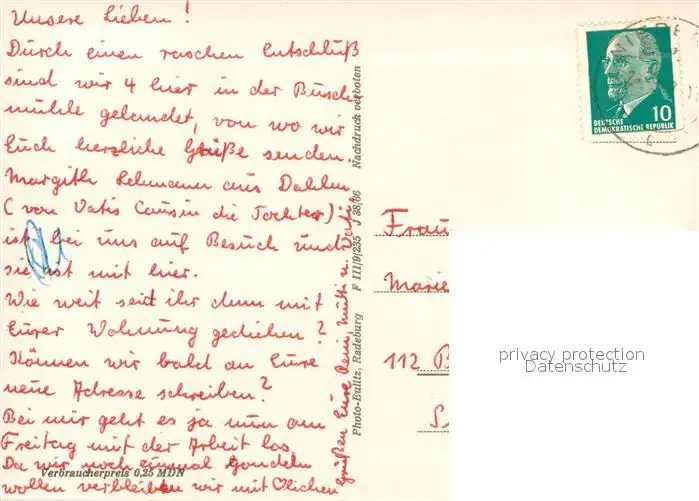 Unsere Lieben!
Durch einen raschen Entschluß
sind wir 4 hier in der Busch
mühle gelandet, von wo wir
Euch herzliche Grüße senden.
Margith Lehmann aus Dahlen
(von Vatis Cousin die Tochter)
ist bei uns auf Besuch und
sie ist mit hier.
Wie weit seid ihr denn mit
Eurer Wohnung gediehen?
Können wir bald an Eure
neue Adresse schreiben?
Bei mir geht es ja nun am
Freitag mit der Arbeit los
Da wir noch einmal gondeln
wollen verbleiben wir mit ♡lichen
Grüßen Eure Reni, Mutti u. Vati.
Verbraucherpreis 0,25 MDN
Photo-Eulitz, Radeburg F III/9/235 J 38/66 Nachdruck verboten
10
DEUTSCHE
DEMOKRATISCHE REPUBLIK
Frau
Marie
112 B
privacy protection
Datenschutz